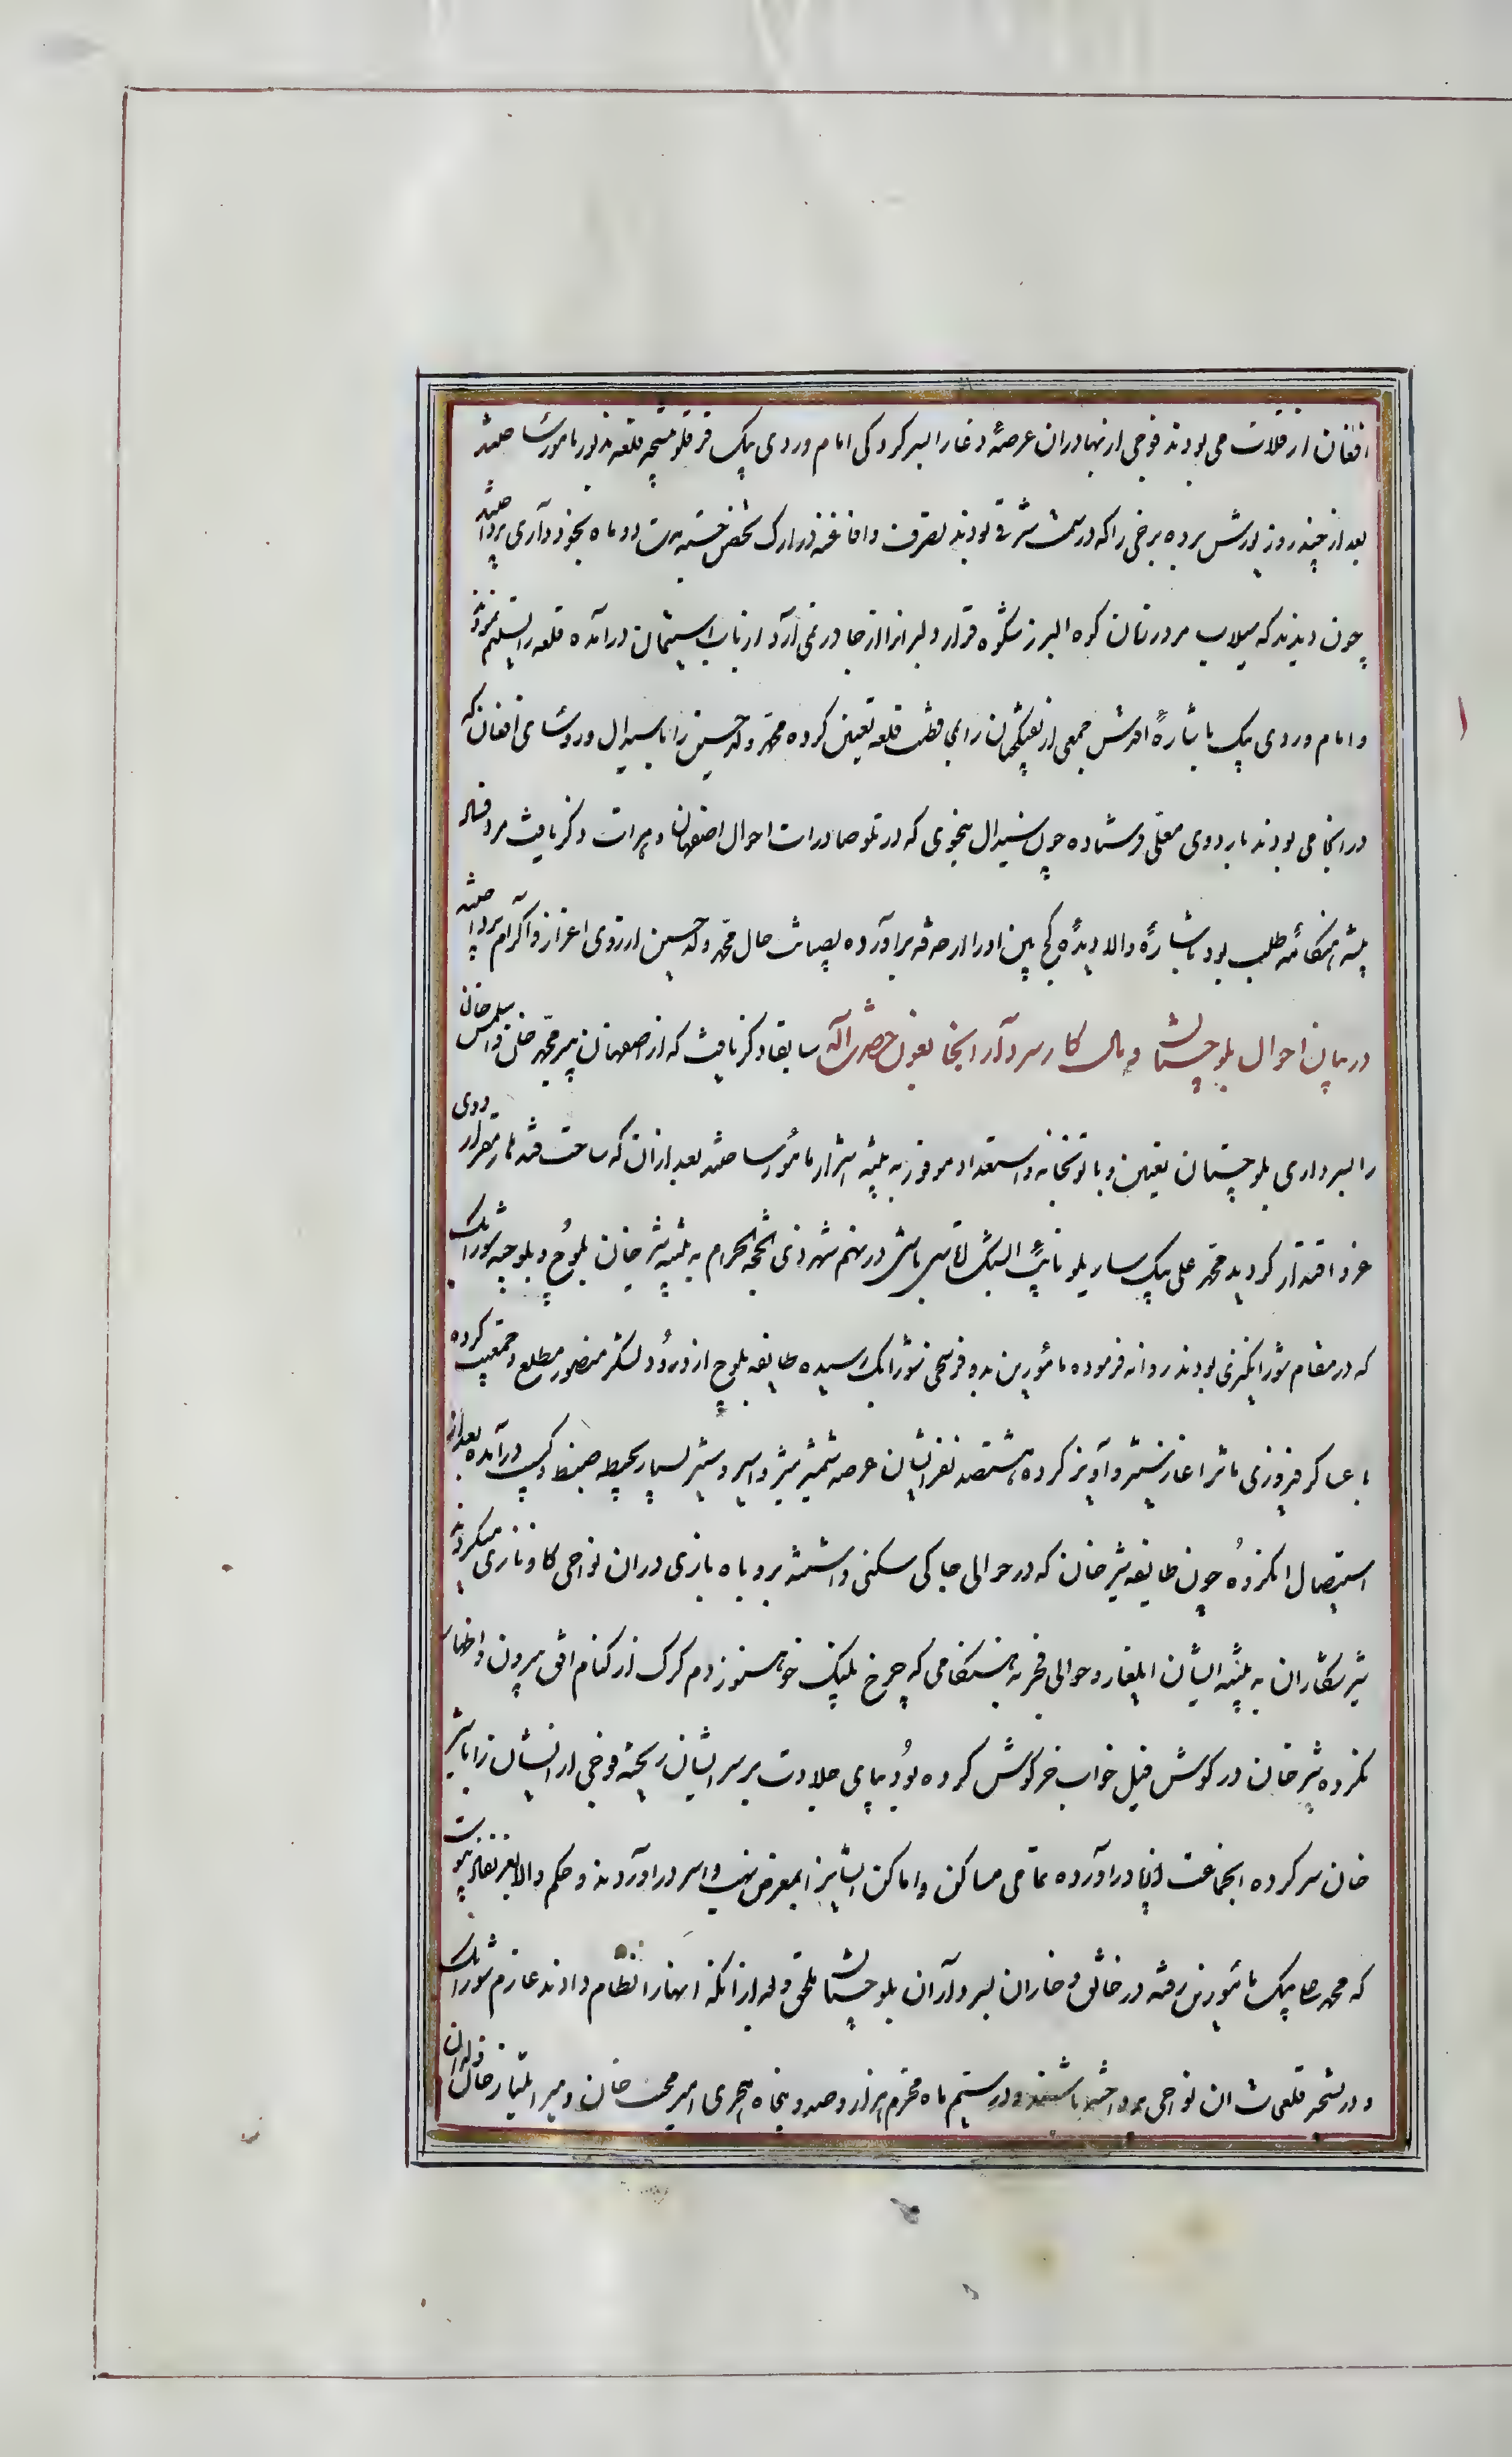 افغان از قلات می بودند فوجی از بهادران عرصهٔ وغا را بسرکردگی امام وردی بیک قرقلو بتسخیر قلعه مذبور مامور ساختند
بعد از چند روز یورش برده برجی را که در سمت شرقی بودند تصرف و افاغنه در ارک متحصن جسته مدت دو ماه بخودداری پرداختند
چون دیدند که سیلاب مردرتان کوه البرز شکوه قرار دلیرانرا از جا در نمی آرد از باب استیمان درآمده قلعه را تسلیم نمودند
و امام وردی بیک باشارهٔ اقدس جمعی از تفنگچیان را بمحافظت قلعه تعیین کرده محمد ولد حسین را با سیدال و رؤسای افغان که
در انجا می بودند باردوی معلی فرستاده چون سیدال بنحوی که در تلو صادرات احوال اصفهان و هرات ذکر یافت مرد فسانه
پیشه هنگامه طلب بود باشارهٔ والا دیدهٔ کج بین او را از حدقه برآورده بصیانت حال محمد ولد حسین از روی اعزاز و اکرام پرداختند
در بیان احوال بلوچستان و مال کار سرداران انجا بعون حضرت اله سابقا ذکر یافت که از اصفهان پیر محمد خان و اسلمس خان
را بسرداری بلوچستان تعیین و با توپخانه و استعداد موفور به تنبیه اشرار مامور ساختند بعد از ان که ساحت قندهار مقر اردوی
عز و اقتدار گردید محمد علی بیک ساریلو نایب ایشیک اقاسی باشی در نهم شهر ذی الحجه الحرام به تنبیه شیر خان بلوچ و بلوچیه شورابک
که در مقام شورانگیزی بودند روانه فرموده مامورین بدو فرسخی شورابک رسیده طایفه بلوچ از ورود لشکر منصور مطلع و جمعیت کرده
با عساکر فیروزی ماثر اغاز ستیز و آویز کرده هشتصد نفر ایشان عرصه شمشیر تیز و اسیر و ستیر بسیار بحیطه ضبط و کسب درآمده بعد از
استیصال انگروه چون طایفه شیر خان که در حوالی جاکی سکنی داشتند بروباه بازی در ان نواحی کاوتازی میکردند
شیر شکاران به تنبیه ایشان ایلغار و حوالی فجر به هنگامی که چرخ پلنگ خو هنوز دم گرگ از کنام افق بیرون و اظهار
نکرده شیر خان در گوش فیل خواب خرگوش کرده بود بپای جلادت بر سر ایشان ریخته فوجی از ایشان را با شیر
خان سرکرده انجماعت از پا درآورده تمامی مساکن و اماکن ایشانرا بمعرض نهب و اسر درآوردند و حکم والا بعز نفاذ پیوست
که محمد علی بیک با مامورین رفته در خالق و خاران بسرداران بلوچستان ملحق و بعد از انکه انها را انتظام دادند عازم شورابک
و در تسخیر قلعجات ان نواحی پرداخته باشند و در بیستم ماه محرم هزار و صد و پنجاه هجری امیر محبت خان و میر التیاز خان ولدان